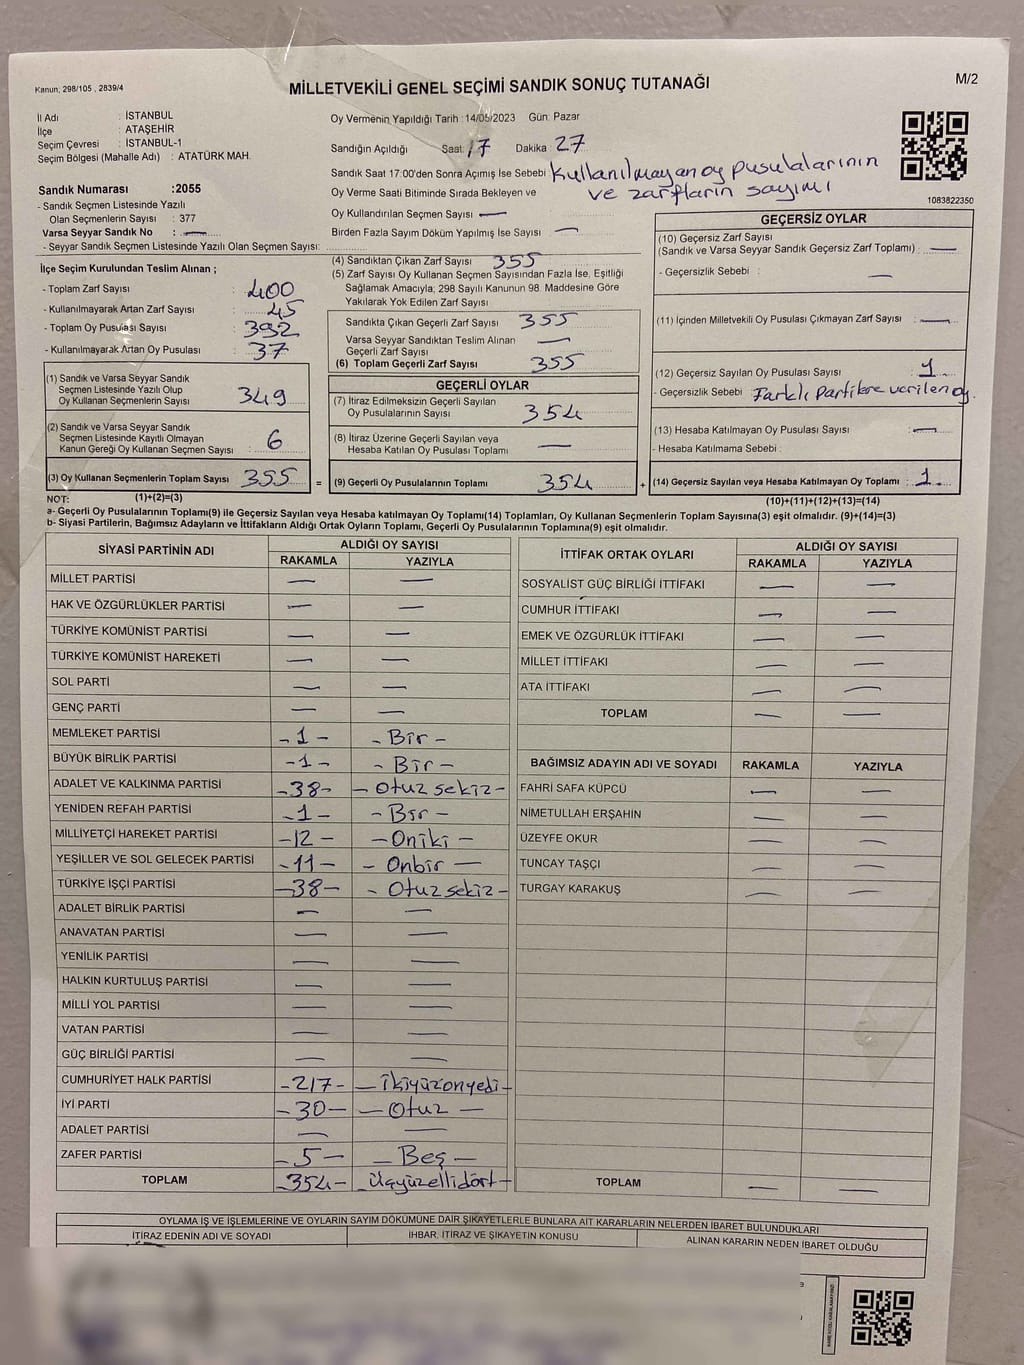 Kanun, 298/105 , 2839/4
MİLLETVEKİLİ GENEL SEÇİMİ SANDIK SONUÇ TUTANAĞI
M/2
İl Adı : İSTANBUL
İlçe : ATAŞEHİR
Seçim Çevresi : İSTANBUL-1
Seçim Bölgesi (Mahalle Adı) : ATATÜRK MAH.
Sandık Numarası :2055
- Sandık Seçmen Listesinde Yazılı
Olan Seçmenlerin Sayısı : 377
Varsa Seyyar Sandık No : —
- Seyyar Sandık Seçmen Listesinde Yazılı Olan Seçmen Sayısı:
Oy Vermenin Yapıldığı Tarih :14/05/2023 Gün: Pazar
Sandığın Açıldığı Saat: 17 Dakika 27
Sandık Saat 17:00'den Sonra Açımış İse Sebebi Kullanılmayan oy pusulalarının
ve zarfların sayımı
Oy Verme Saati Bitiminde Sırada Bekleyen ve
Oy Kullandırılan Seçmen Sayısı —
Birden Fazla Sayım Döküm Yapılmış İse Sayısı —
1083822350
İlçe Seçim Kurulundan Teslim Alınan ;
- Toplam Zarf Sayısı : 400
- Kullanılmayarak Artan Zarf Sayısı : 45
- Toplam Oy Pusulası Sayısı : 392
- Kullanılmayarak Artan Oy Pusulası : 37
(1) Sandık ve Varsa Seyyar Sandık
Seçmen Listesinde Yazılı Olup
Oy Kullanan Seçmenlerin Sayısı : 349
(2) Sandık ve Varsa Seyyar Sandık
Seçmen Listesinde Kayıtlı Olmayan
Kanun Gereği Oy Kullanan Seçmen Sayısı : 6
(3) Oy Kullanan Seçmenlerin Toplam Sayısı : 355
(4) Sandıktan Çıkan Zarf Sayısı 355
(5) Zarf Sayısı Oy Kullanan Seçmen Sayısından Fazla İse, Eşitliği
Sağlamak Amacıyla; 298 Sayılı Kanunun 98. Maddesine Göre
Yakılarak Yok Edilen Zarf Sayısı :
Sandıkta Çıkan Geçerli Zarf Sayısı : 355
Varsa Seyyar Sandıktan Teslim Alınan
Geçerli Zarf Sayısı : —
(6) Toplam Geçerli Zarf Sayısı : 355
GEÇERLİ OYLAR
(7) İtiraz Edilmeksizin Geçerli Sayılan
Oy Pusulalarının Sayısı : 354
(8) İtiraz Üzerine Geçerli Sayılan veya
Hesaba Katılan Oy Pusulası Toplamı : —
= (9) Geçerli Oy Pusulalarının Toplamı : 354
GEÇERSİZ OYLAR
(10) Geçersiz Zarf Sayısı
(Sandık ve Varsa Seyyar Sandık Geçersiz Zarf Toplamı) : —
- Geçersizlik Sebebi : —
(11) İçinden Milletvekili Oy Pusulası Çıkmayan Zarf Sayısı : —
(12) Geçersiz Sayılan Oy Pusulası Sayısı : 1
- Geçersizlik Sebebi : Farklı partilere verilen oy.
(13) Hesaba Katılmayan Oy Pusulası Sayısı : —
- Hesaba Katılmama Sebebi :
+ (14) Geçersiz Sayılan veya Hesaba Katılmayan Oy Toplamı : 1
NOT: (1)+(2)=(3) (10)+(11)+(12)+(13)=(14)
a- Geçerli Oy Pusulalarının Toplamı(9) ile Geçersiz Sayılan veya Hesaba Katılmayan Oy Toplamı(14) Toplamları, Oy Kullanan Seçmenlerin Toplam Sayısına(3) eşit olmalıdır. (9)+(14)=(3)
b- Siyasi Partilerin, Bağımsız Adayların ve İttifakların Aldığı Ortak Oyların Toplamı, Geçerli Oy Pusulalarının Toplamına(9) eşit olmalıdır.
SİYASİ PARTİNİN ADI ALDIĞI OY SAYISI
RAKAMLA YAZIYLA
MİLLET PARTİSİ — —
HAK VE ÖZGÜRLÜKLER PARTİSİ — —
TÜRKİYE KOMÜNİST PARTİSİ — —
TÜRKİYE KOMÜNİST HAREKETİ — —
SOL PARTİ — —
GENÇ PARTİ — —
MEMLEKET PARTİSİ -1- -Bir-
BÜYÜK BİRLİK PARTİSİ -1- -Bir-
ADALET VE KALKINMA PARTİSİ -38- -Otuz sekiz-
YENİDEN REFAH PARTİSİ -1- -Bir-
MİLLİYETÇİ HAREKET PARTİSİ -12- -Oniki-
YEŞİLLER VE SOL GELECEK PARTİSİ -11- -Onbir-
TÜRKİYE İŞÇİ PARTİSİ -38- -Otuz sekiz-
ADALET BİRLİK PARTİSİ — —
ANAVATAN PARTİSİ — —
YENİLİK PARTİSİ — —
HALKIN KURTULUŞ PARTİSİ — —
MİLLİ YOL PARTİSİ — —
VATAN PARTİSİ — —
GÜÇ BİRLİĞİ PARTİSİ — —
CUMHURİYET HALK PARTİSİ -217- -İkiyüzonyedi-
İYİ PARTİ -30- -Otuz-
ADALET PARTİSİ — —
ZAFER PARTİSİ -5- -Beş-
TOPLAM -354- -Üçyüzellidört-
İTTİFAK ORTAK OYLARI ALDIĞI OY SAYISI
RAKAMLA YAZIYLA
SOSYALİST GÜÇ BİRLİĞİ İTTİFAKI — —
CUMHUR İTTİFAKI — —
EMEK VE ÖZGÜRLÜK İTTİFAKI — —
MİLLET İTTİFAKI — —
ATA İTTİFAKI — —
TOPLAM — —
BAĞIMSIZ ADAYIN ADI VE SOYADI RAKAMLA YAZIYLA
FAHRİ SAFA KÜPCÜ — —
NİMETULLAH ERŞAHİN — —
ÜZEYFE OKUR — —
TUNCAY TAŞÇI — —
TURGAY KARAKUŞ — —
TOPLAM — —
OYLAMA İŞ VE İŞLEMLERİNE VE OYLARIN SAYIM DÖKÜMÜNE DAİR ŞİKAYETLERLE BUNLARA AİT KARARLARIN NELERDEN İBARET BULUNDUKLARI
İTİRAZ EDENİN ADI VE SOYADI İHBAR, İTİRAZ VE ŞİKAYETİN KONUSU ALINAN KARARIN NEDEN İBARET OLDUĞU